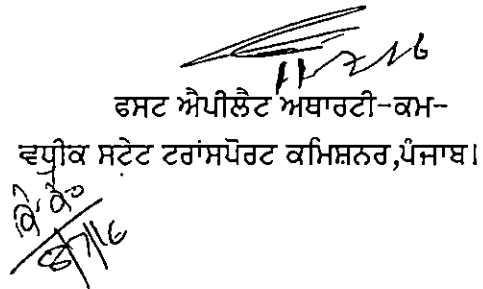 11-7-16
ਫਸਟ ਐਪੀਲੈਟ ਅਥਾਰਟੀ-ਕਮ-
ਵਧੀਕ ਸਟੇਟ ਟਰਾਂਸਪੋਰਟ ਕਮਿਸ਼ਨਰ,ਪੰਜਾਬ।